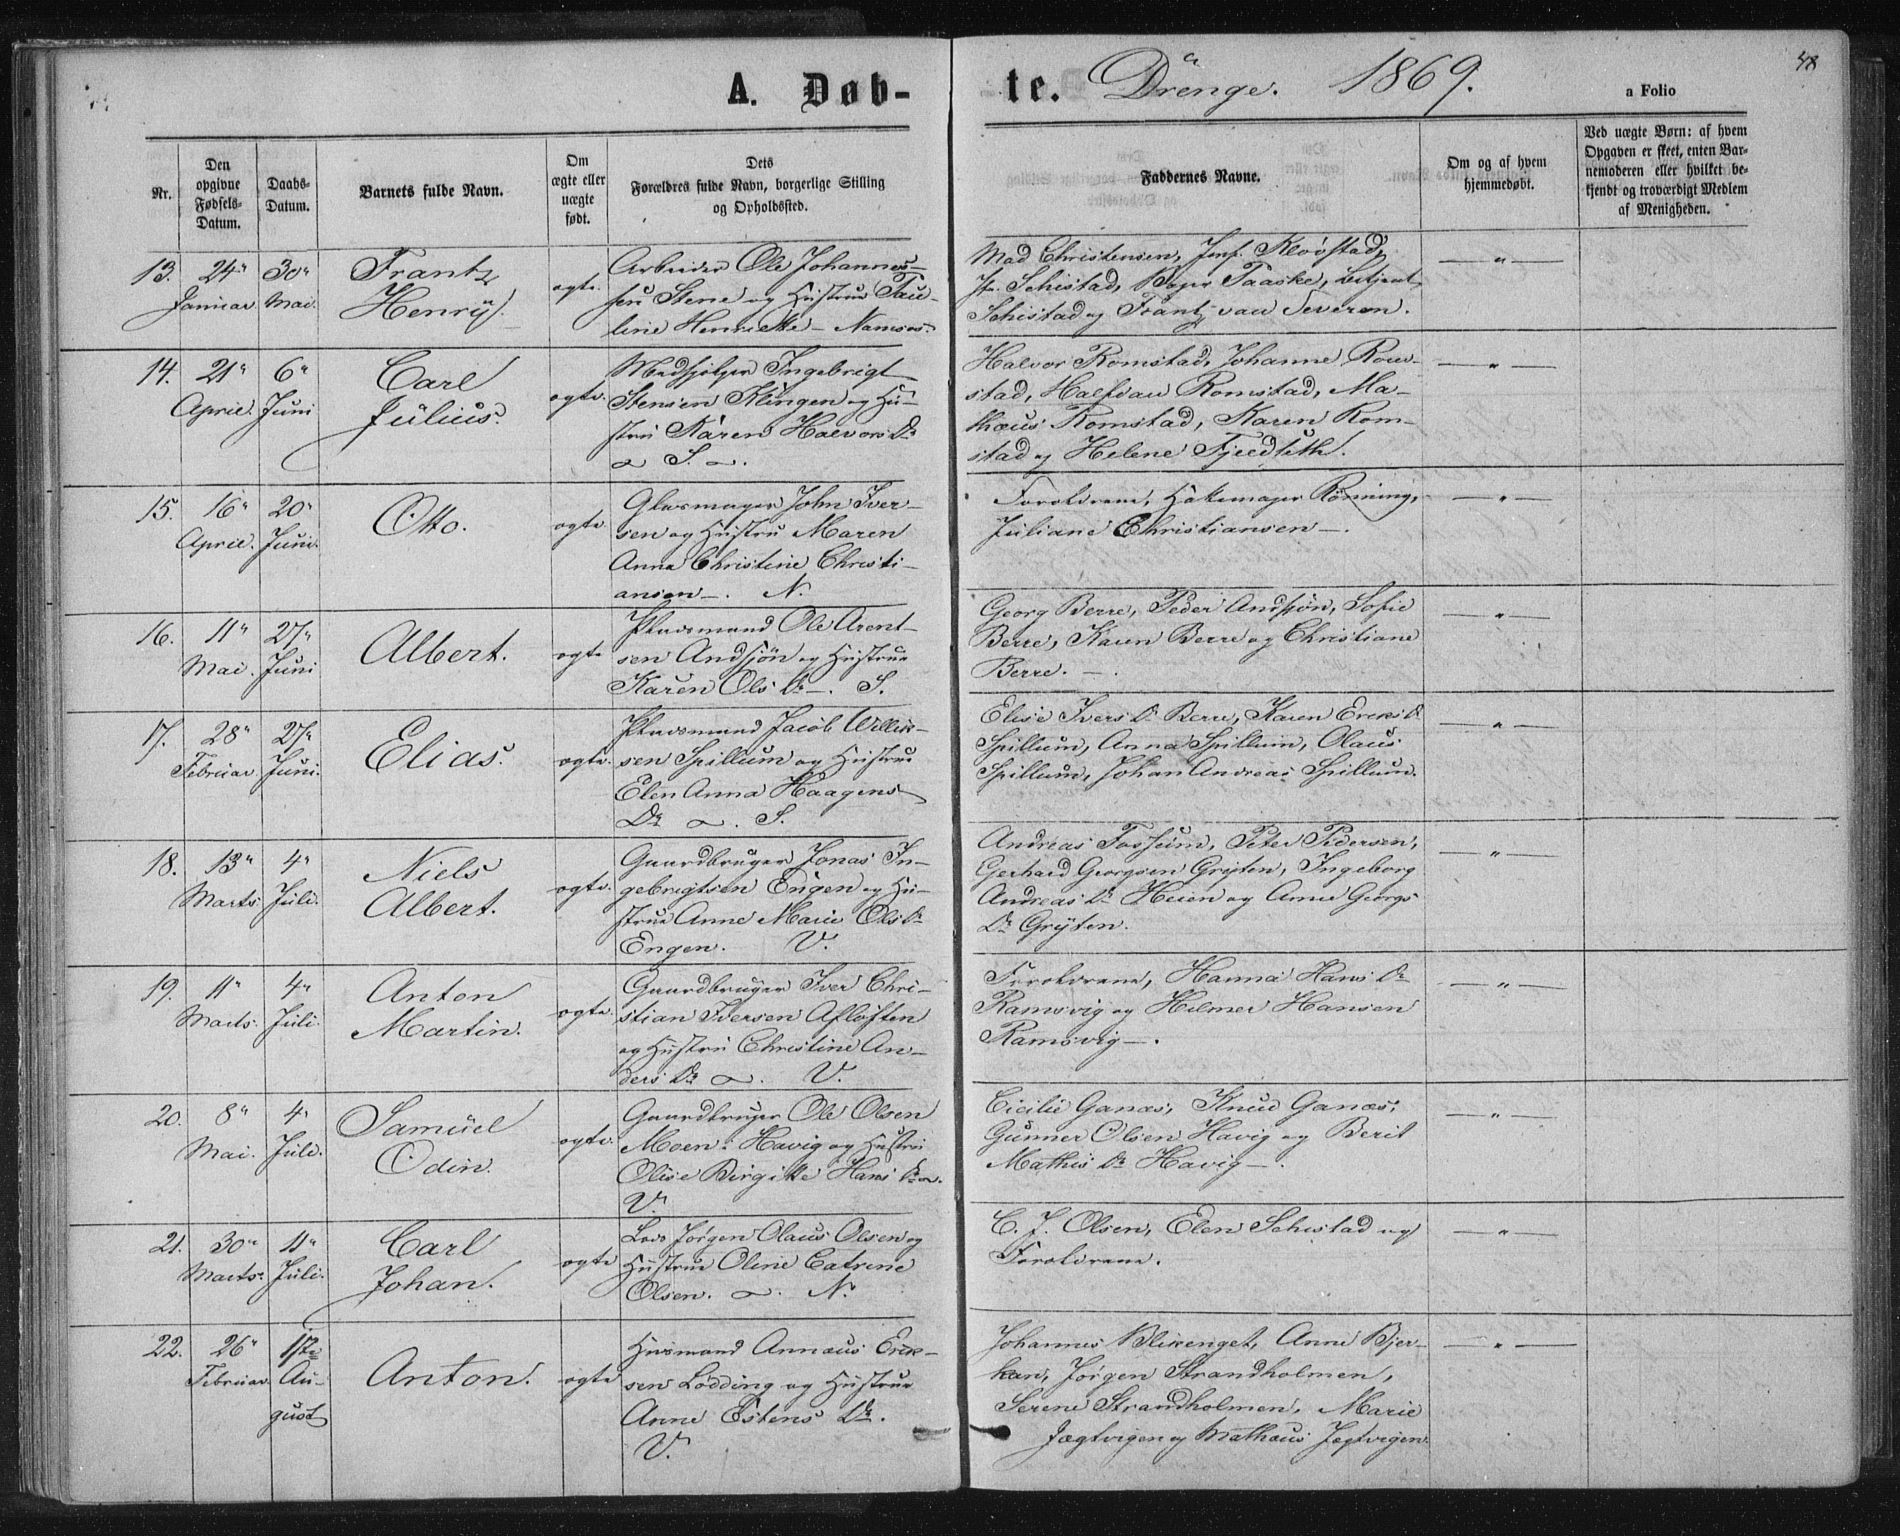 A. Døb- te. Drenge. 1869.
a Folio
48
Nr.
Den opgivne Fødsels-Datum.
Daabs-Datum.
Barnets fulde Navn.
Om ægte eller uægte født.
Dets Forældres fulde Navn, borgerlige Stilling og Opholdssted.
Faddernes Navne.
Om og af hvem hjemmedøbt.
Ved uægte Børn: af hvem Opgaven er skeet, enten Barnemoderen eller hvilket bekjendt og troværdigt Medlem af Menigheden.
13. 24" Januar. 30" Mai.
Frantz
Henry.
ægte.
Arbeider Ole Johannes-
sen Stene og Hustrue Pau-
line Henriette - Namsos.
Mad Christensen, Jmf. Klovstad,
Schistad, Bager Paaske, Betjent
Schistad og Frantz van Severen.
— " —
14. 21" April. 6" Juni
Carl
Julius.
ægte.
Ingebrigt
Stensen Klingen og Hu-
strue Karen Halvors Dr
S.
Halvor Romstad, Johanne Rom-
stad, Halfdan Romstad, Ma-
thæus Romstad, Karen Rom-
stad og Helene Fjeedleth.
— " —
15. 16" April. 20" Juni.
Otto.
ægte.
Glasmager John Iver-
sen og Hustru Maren
Anna Christine Christi-
ansen —. N.
Forældrene, Rønning,
Juliane Christiansen —.
— " —
16. 11" Mai. 27" Juni
Albert.
ægte
Pladsmand Ole Arent-
sen Andsjøn og Hustrue
Karen Ols Dr —. S.
Georg Berre, Peder Andsjøn, Sofie
Berre, Karen Berre og Christiane
Berre. —.
— " —
17. 28" Februar 27" Juni.
Elias.
ægte.
Pladsmand Jacob Willik-
sen Spillum og Hustrue
Elen Anna Haagens
Dr S.
Elise Ivers Dr Berre, Karen Eriks Dr
Spillum, Anna Spillum, Olaus
Spillum, Johan Andreas Spillum.
— " —
18. 13" Marts. 4" Juli.
Niels
Albert.
ægte.
Gaardbruger Jonas In-
gebrigtsen Engen og Hu-
strue Anne Marie Ols Dr
Engen. V.
Andreas Fossum, Peter Pedersen,
Gerhard Georgsen Gryten, Ingeborg
Andreas Dr Heien og Anne Georgs
Dr Gryten.
— " —
19. 11" Marts. 4" Juli.
Anton
Martin.
ægte.
Gaardbruger Iver Chri-
stian Iversen Afløften
og Hustru Christine An-
ders Dr V.
Forældrene, Hanna Hans Dr
Ramsvig og Hilmer Hansen
Ramsvig —.
— " —
20. 8" Mai. 4" Juli.
Samüel
Odin.
ægte.
Gaardbruger Ole Olsen
Moen - Havig og Hustru
Olise Birgitte Hans Dr
V.
Cicilie Ganæs, Knud Ganæs,
Gunner Olsen Havig og Berit
Mathis Dr Havig —.
— " —
21. 30" Marts. 11" Juli.
Carl
Johan.
ægte
Lods Jørgen Olaus Olsen og
Hustrue Oline Catrine
Olsen. N.
C. J. Olsen, Elen Schistad og
Forældrene.
— " —
22. 26" Februar. 1ste Au-
gust
Anton.
ægte
Husmand Annæus Erik-
sen Lødding og Hustrue
Anne Estens Dr.
V.
Johannes Blikenget, Anne Bjer-
kan, Jørgen Strandholmen,
Serene Strandholmen, Marie
Jægtvigen og Mathæus Jægtvigen.
— " —